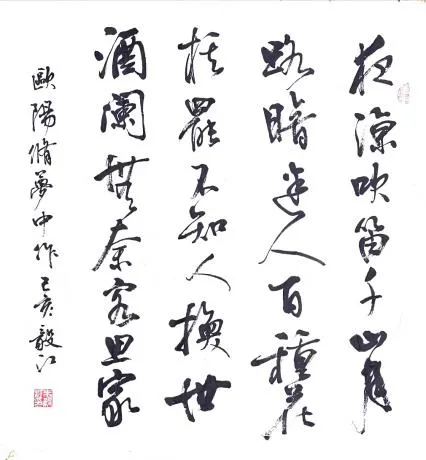 夜涼吹笛千山月
路暗迷人百種花
棋罷不知人換世
酒闌無奈客思家
歐陽脩夢中作己亥毅江